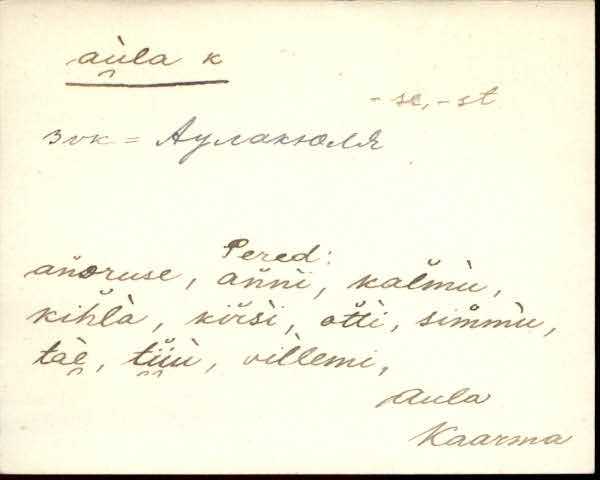 au̯la k
-se, -st
звк = Аулакюля
Pered:
andruse, an̆nì, kal̆mù,
kih̆là, kir̆sì, ot̆tì, sim̆mù,
tàe̯, tüù, villemi,
Aula
Kaarma